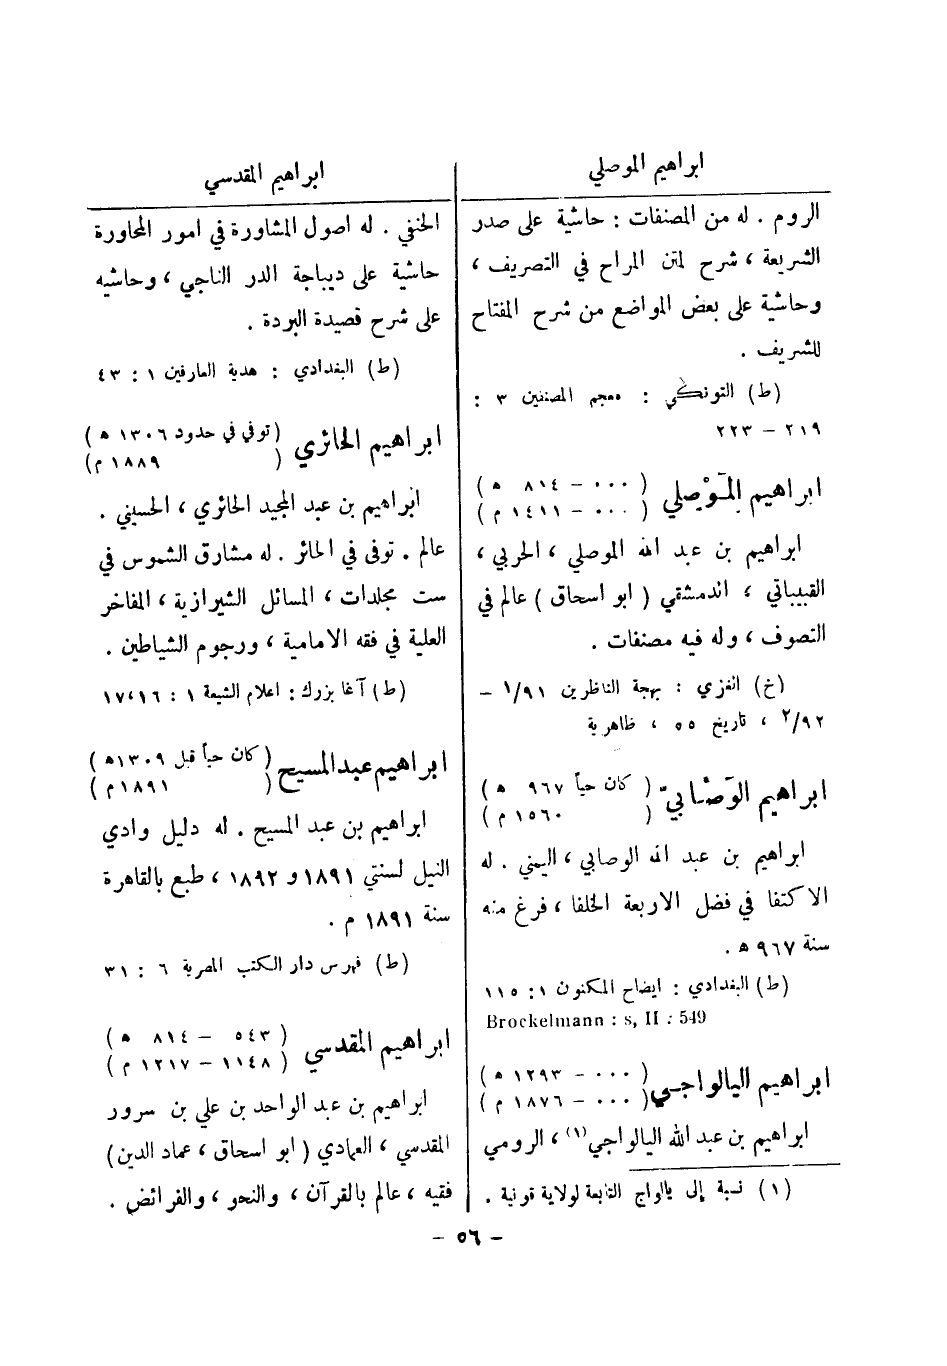 ابراهيم الموصلي
الروم . له من المصنفات : حاشية على صدر
الشريعة ، شرح لمتن المراح في التصريف ،
وحاشية على بعض المواضع من شرح المفتاح
للشريف .
(ط) التونكي : معجم المصنفين ٣ :
٢١٩ – ٢٢٣
ابراهيم المَوْصِلي (٠٠٠ – ٨١٤ ه)
(٠٠٠ – ١٤١١ م)
ابراهيم بن عبد الله الموصلي ، الحربي ،
القبيباتي ، الدمشقي ( ابو اسحاق ) عالم في
التصوف ، وله فيه مصنفات .
(خ) الغزي : بهجة الناظرين ٩١/١ –
٩٢/٢ ، تاريخ ٥٥ ، ظاهرية
ابراهيم الوَصَّابيّ ( كان حياً ٩٦٧ ه )
( ١٥٦٠ م )
ابراهيم بن عبد الله الوصابي ، اليمني . له
الاكتفا في فضل الاربعة الخلفا ، فرغ منه
سنة ٩٦٧ ه .
(ط) البغدادي : ايضاح المكنون ١ : ١١٥
Brockelmann : s, II : 549
ابراهيم اليالواجي (٠٠٠ – ١٢٩٣ ه)
(٠٠٠ – ١٨٧٦ م)
ابراهيم بن عبد الله اليالواجي (١) ، الرومي
(١) نسبة إلى يالواج التابعة لولاية قونية .
ابراهيم المقدسي
الحنفي . له اصول المشاورة في امور المحاورة
حاشية على ديباجة الدر الناجي ، وحاشيه
على شرح قصيدة البردة .
(ط) البغدادي : هدية العارفين ١ : ٤٣
ابراهيم الحائري (توفي في حدود ١٣٠٦ ه)
( ١٨٨٩ م)
ابراهيم بن عبد المجيد الحائري ، الحسيني .
عالم . توفى في الحائر . له مشارق الشموس في
ست مجلدات ، المسائل الشيرازية ، المفاخر
العلية في فقه الامامية ، ورجوم الشياطين .
(ط) آغا بزرك : اعلام الشيعة ١ : ١٦،١٧
ابراهيم عبد المسيح ( كان حياً قبل ١٣٠٩ه )
( ١٨٩١م )
ابراهيم بن عبد المسيح . له دليل وادي
النيل لسنتي ١٨٩١ و ١٨٩٢ ، طبع بالقاهرة
سنة ١٨٩١ م .
(ط) فهرس دار الكتب المصرية ٦ : ٣١
ابراهيم المقدسي ( ٥٤٣ – ٨١٤ ه )
( ١١٤٨ – ١٢١٧ م )
ابراهيم بن عبد الواحد بن علي بن سرور
المقدسي ، العمادي ( ابو اسحاق ، عماد الدين)
فقيه ، عالم بالقرآن ، والنحو ، والفرائض .
– ٥٦ –